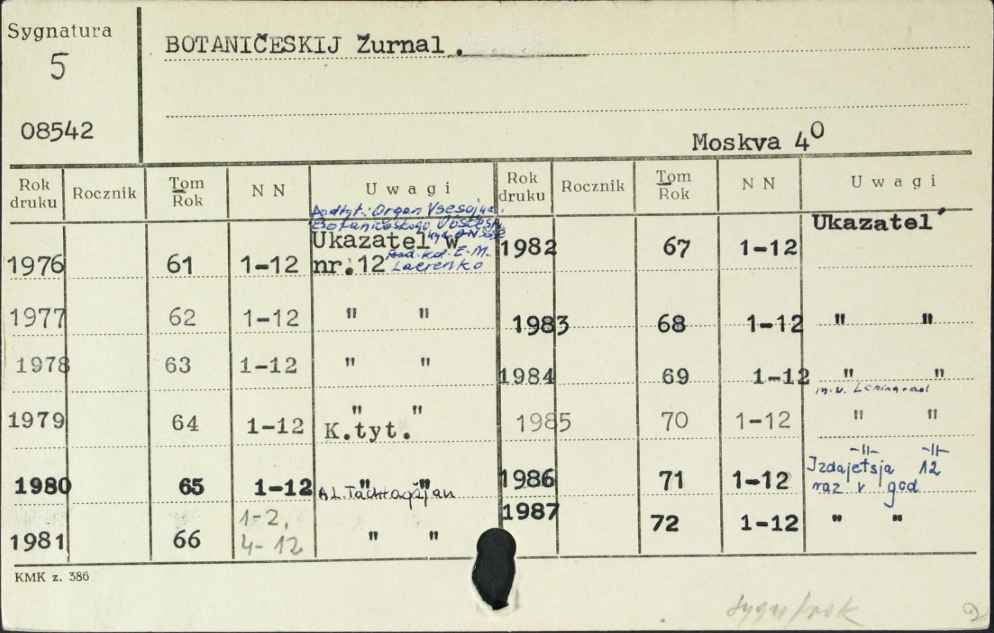 Sygnatura
5
08542
BOTANIČESKIJ Žurnal.
Moskva 4⁰
Rok druku Rocznik Tom Rok N N Uwagi
Podtyt.: Organ Vsesojuz.
Botaničeskogo
Ukazatel w
1976 61 1-12 nr.12 E.M.
1977 62 1-12 " "
1978 63 1-12 " "
" "
1979 64 1-12 K.tyt.
1980 65 1-12 " "
A.L.
1-2,
1981 66 4-12 " "
Rok druku Rocznik Tom Rok N N Uwagi
Ukazatel'
1982 67 1-12
1983 68 1-12 " "
1984 69 1-12 " "
m.v. Leningrad
1985 70 1-12 " "
-||- -||-
Izdajetsja 12
1986 71 1-12 raz v god
1987 72 1-12 " "
KMK z. 386
2